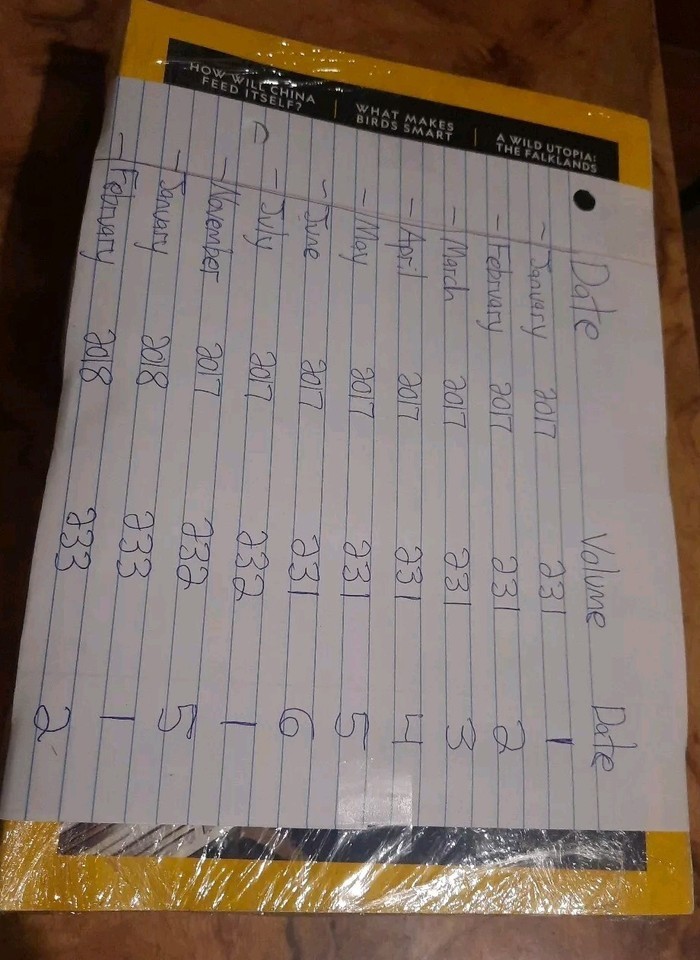 HOW WILL CHINA
FEED ITSELF?
WHAT MAKES
BIRDS SMART
A WILD UTOPIA:
THE FALKLANDS
Date Volume Date
- January 2017 231 1
- February 2017 231 2
- March 2017 231 3
- April 2017 231 4
- May 2017 231 5
- June 2017 231 6
- July 2017 232 1
- November 2017 232 5
- January 2018 233 1
- February 2018 233 2